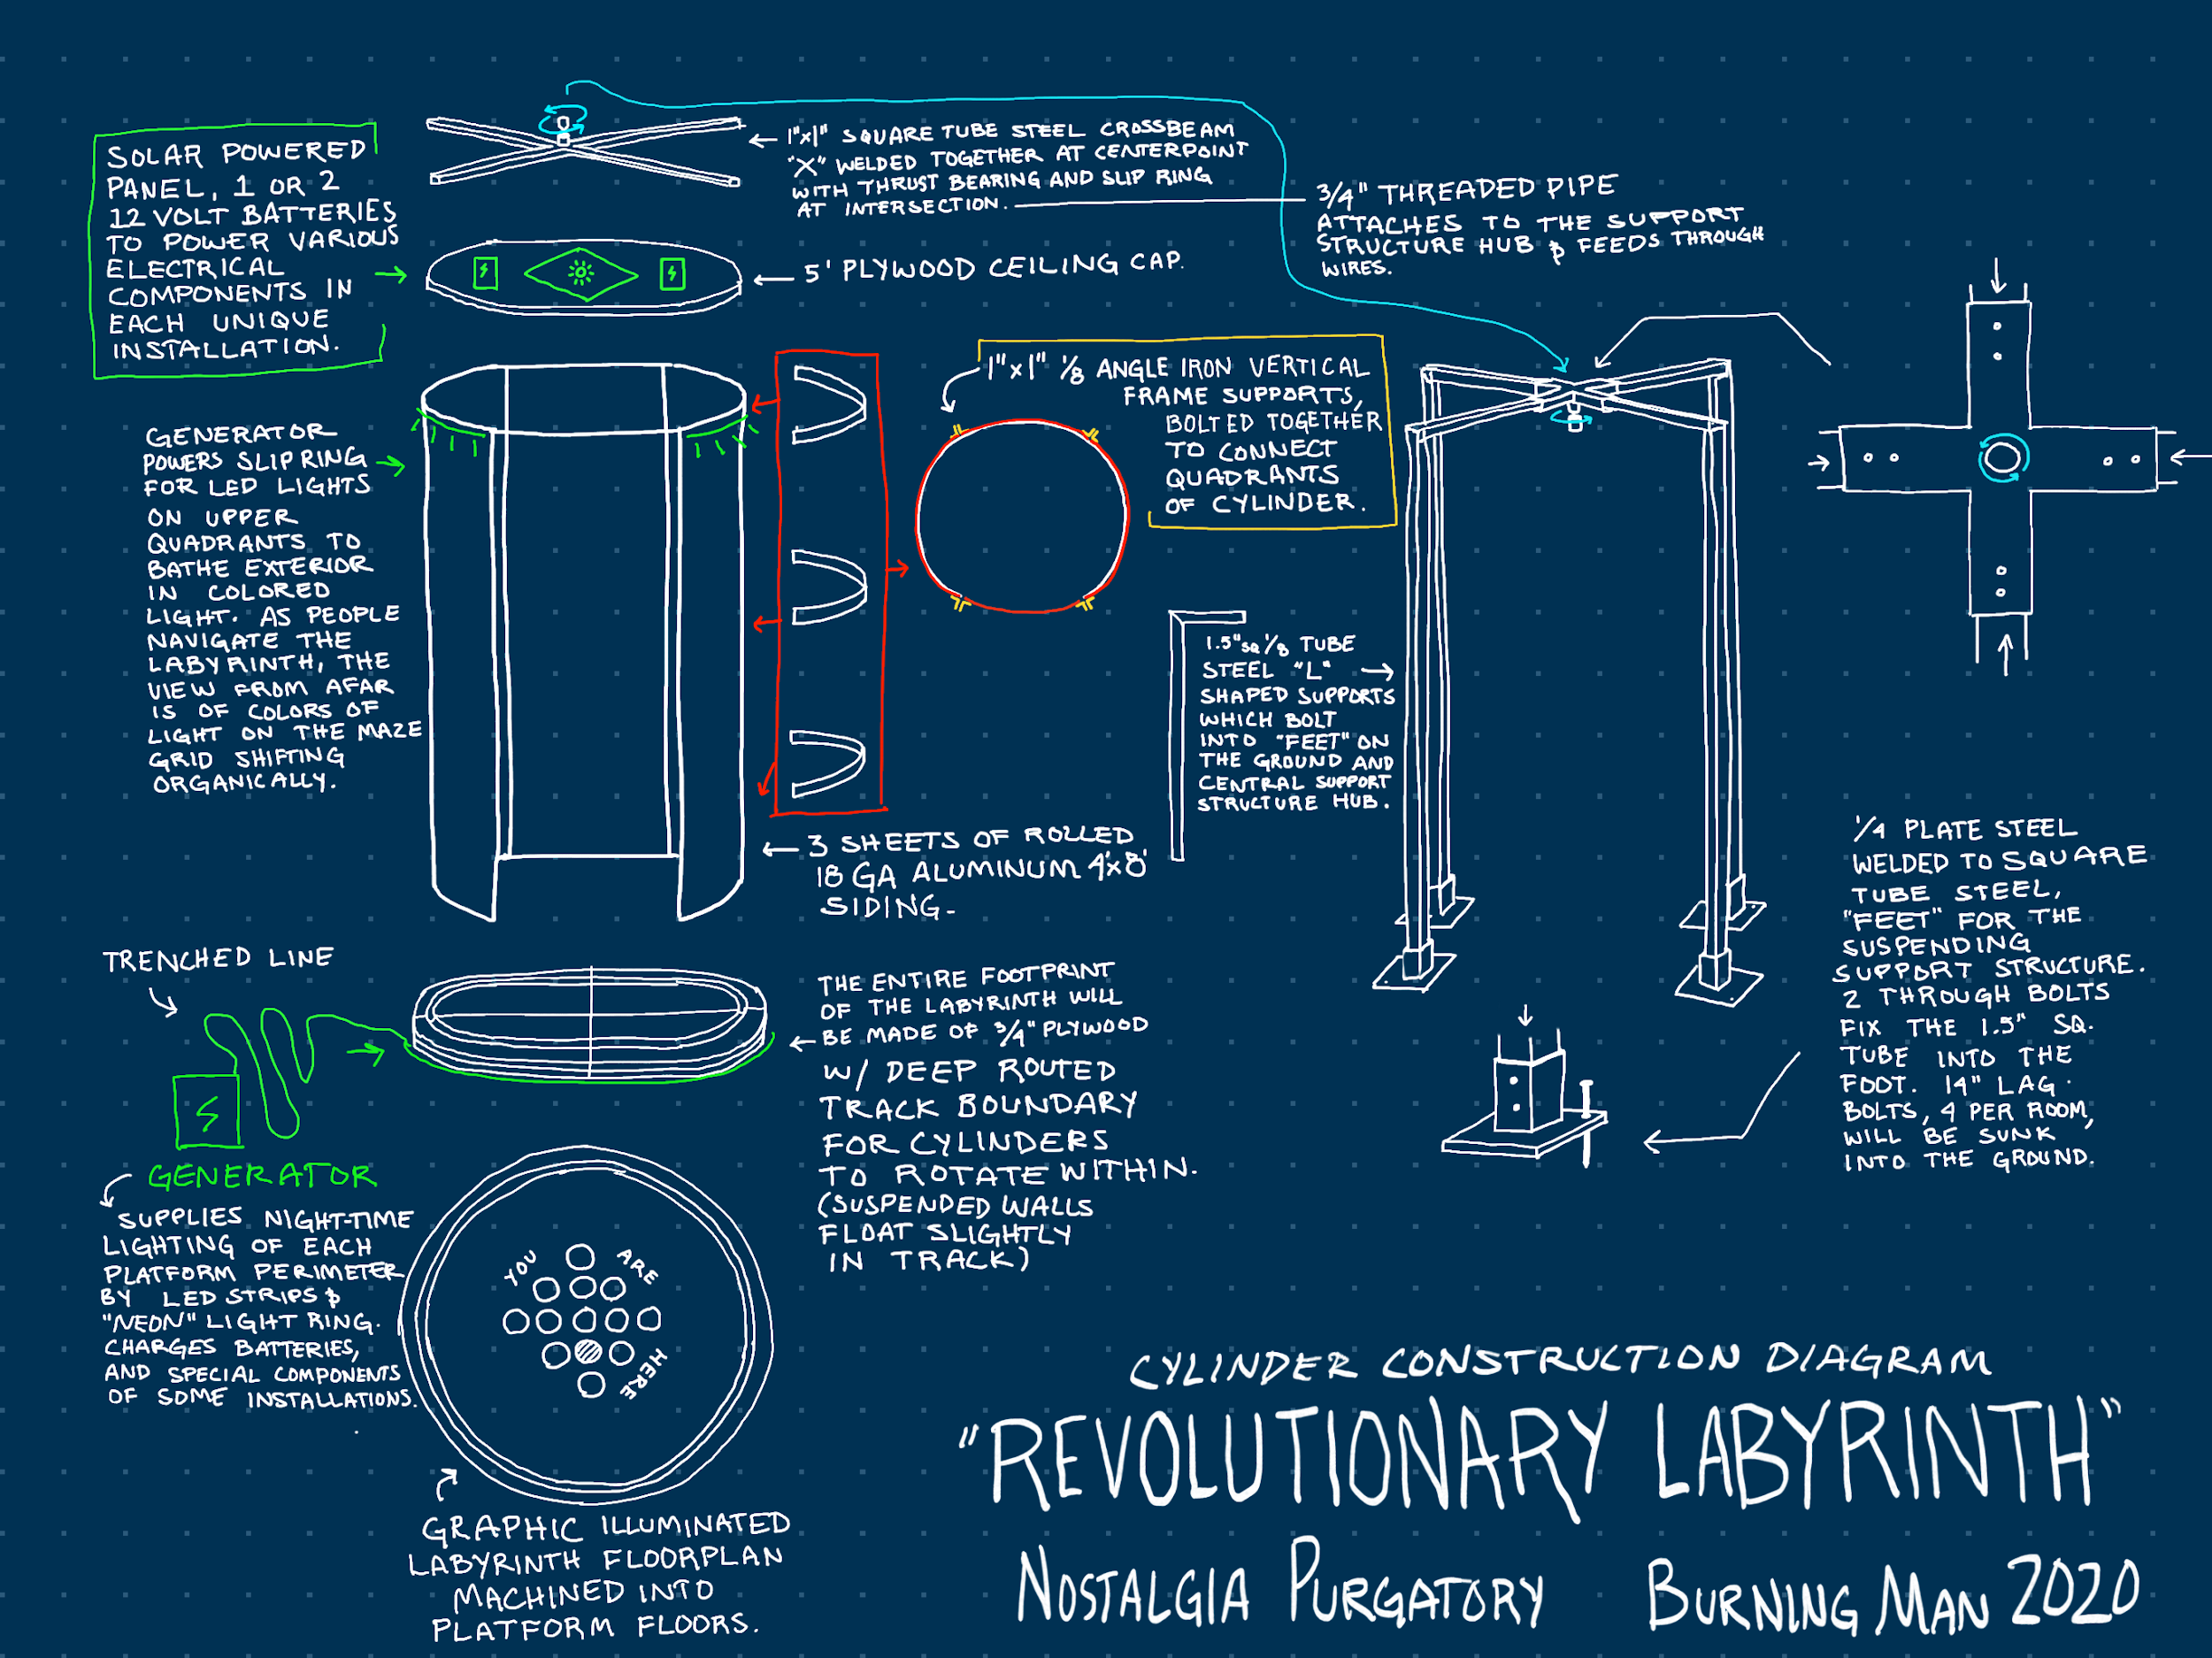 SOLAR POWERED
PANEL, 1 OR 2
12 VOLT BATTERIES
TO POWER VARIOUS
ELECTRICAL
COMPONENTS IN
EACH UNIQUE
INSTALLATION.
1"x1" SQUARE TUBE STEEL CROSSBEAM
"X" WELDED TOGETHER AT CENTERPOINT
WITH THRUST BEARING AND SLIP RING
AT INTERSECTION.
3/4" THREADED PIPE
ATTACHES TO THE SUPPORT
STRUCTURE HUB & FEEDS THROUGH
WIRES.
5' PLYWOOD CEILING CAP.
1"x1" 1/8 ANGLE IRON VERTICAL
FRAME SUPPORTS,
BOLTED TOGETHER
TO CONNECT
QUADRANTS
OF CYLINDER.
GENERATOR
POWERS SLIPRING
FOR LED LIGHTS
ON UPPER
QUADRANTS TO
BATHE EXTERIOR
IN COLORED
LIGHT. AS PEOPLE
NAVIGATE THE
LABYRINTH, THE
VIEW FROM AFAR
IS OF COLORS OF
LIGHT ON THE MAZE
GRID SHIFTING
ORGANICALLY.
1.5" SQ 1/8 TUBE
STEEL "L"
SHAPED SUPPORTS
WHICH BOLT
INTO "FEET" ON
THE GROUND AND
CENTRAL SUPPORT
STRUCTURE HUB.
3 SHEETS OF ROLLED
18 GA ALUMINUM 4'x8'
SIDING-
1/4 PLATE STEEL
WELDED TO SQUARE
TUBE STEEL,
"FEET" FOR THE
SUSPENDING
SUPPORT STRUCTURE.
2 THROUGH BOLTS
FIX THE 1.5" SQ.
TUBE INTO THE
FOOT. 14" LAG
BOLTS, 4 PER ROOM,
WILL BE SUNK
INTO THE GROUND.
TRENCHED LINE
THE ENTIRE FOOTPRINT
OF THE LABYRINTH WILL
BE MADE OF 3/4" PLYWOOD
W/ DEEP ROUTED
TRACK BOUNDARY
FOR CYLINDERS
TO ROTATE WITHIN.
(SUSPENDED WALLS
FLOAT SLIGHTLY
IN TRACK)
GENERATOR
SUPPLIES NIGHT-TIME
LIGHTING OF EACH
PLATFORM PERIMETER
BY LED STRIPS &
"NEON" LIGHT RING.
CHARGES BATTERIES,
AND SPECIAL COMPONENTS
OF SOME INSTALLATIONS.
YOU ARE
HERE
GRAPHIC ILLUMINATED
LABYRINTH FLOORPLAN
MACHINED INTO
PLATFORM FLOORS.
CYLINDER CONSTRUCTION DIAGRAM
"REVOLUTIONARY LABYRINTH"
NOSTALGIA PURGATORY BURNING MAN 2020